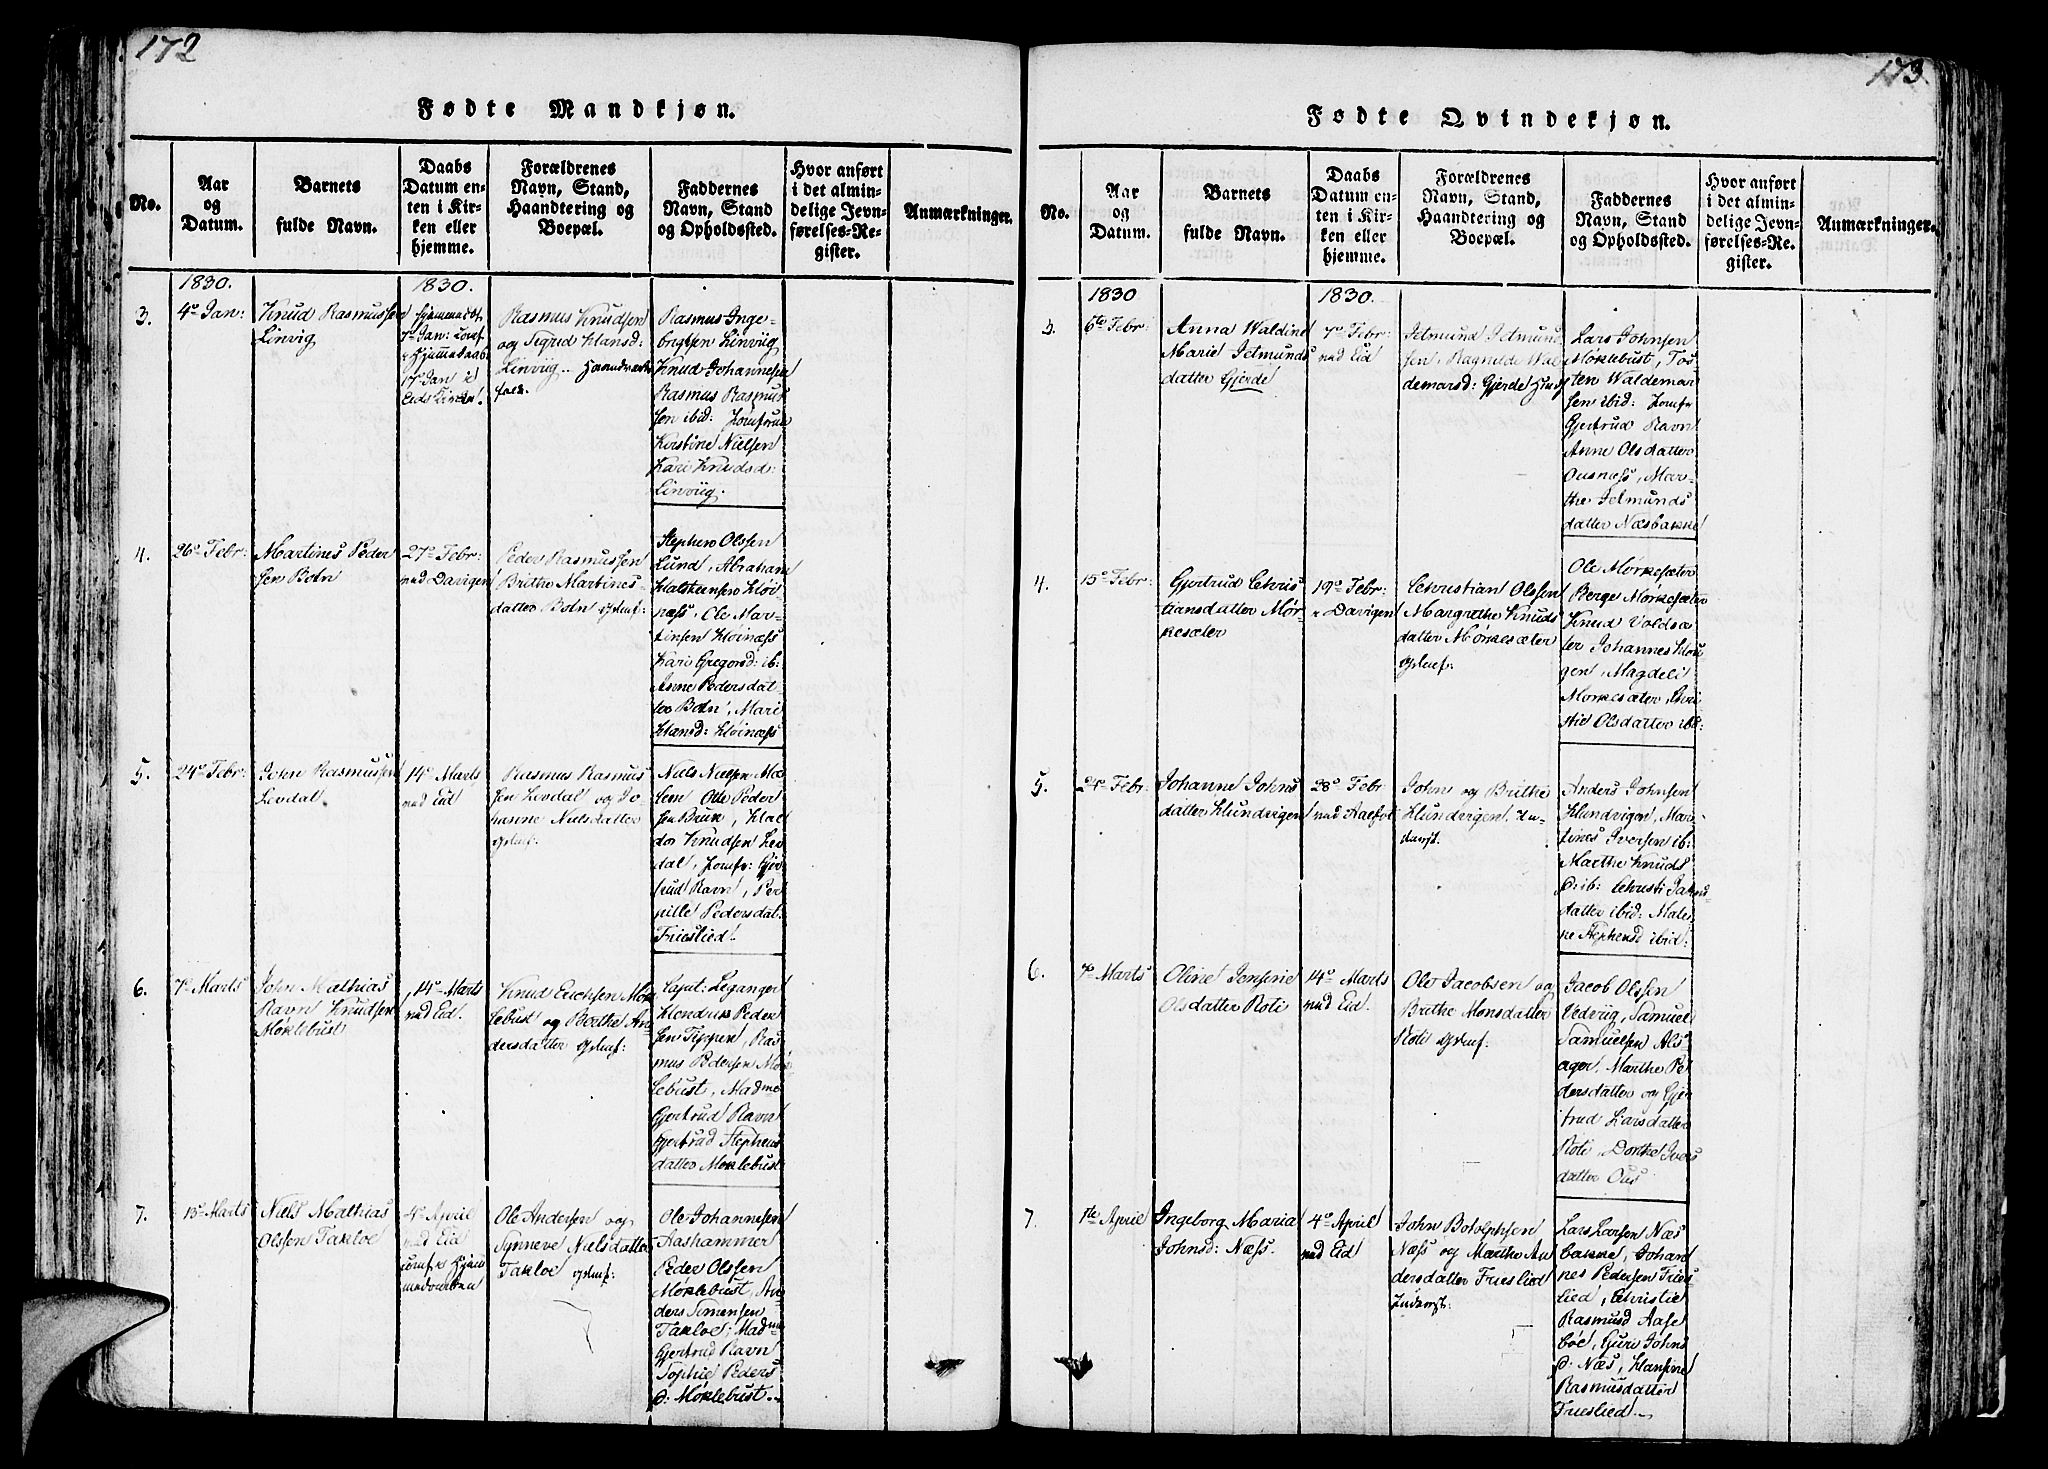 172
Fødte Mandkjøn.
No.
Aar
og
Datum.
Barnets
fulde Navn.
Daabs
Datum en-
ten i Kir-
ken eller
hjemme.
Forældrenes
Navn, Stand,
Haandtering og
Boepæl.
Faddernes
Navn, Stand
og Opholdssted.
Hvor anført
i det almin-
delige Jevn-
førelses-Re-
gister.
Anmærkninger.
1830.
1830.
3.
4de Jan:
Knud Rasmussen
Linvig
Hjemmedøbt
7de Jan:
17de Jan i
Eids
Rasmus Knudsen
og Sigrid Hansd:
Linviig..
folk.
Rasmus Inge-
brigtsen Linviig
Knud Johannesen
Rasmus Rasmus
sen ibid: Jomfrue
Kirstine Nielsen
Kari Knudsd:
Linviig.
4.
26de Febr:
Martines Peder
sen Botn
27de Febr:
ved Davigen
Peder Rasmussen
Brithe Martines
datter Botn
Stephen Olssen
Lund, Abraham
Halsteensen Høi
næss, Ole Mar-
tinsen Høinæss
Kari Gregorsd: ib:
Anne Pedersdat
ter Botn, Mari
Hansd: Høinæss
5.
24de Febr:
John Rasmussen
Levdal
14de Marts
ved Eid
Rasmus Rasmus
sen Levdal og Jo
hanne Nielsdatter
Niels Nielsen Mæ
len Ole Peder
sen Bruk, Hal
dor Knudsen Lev
dal, Jomfr: Gjer
trud Ravn, Per
nille Pedersdat
Frieslied.
6.
7de Marts
John Mathias
Ravn Knudsen
Møklebust
14de Marts
ved Eid.
Knud Erichsen Møk
lebust og Berthe An
dersdatter
Capt: Leganger
Hendrik Peder
sen Tippen, Ras
mus Pedersen Møk
lebust, Madme
Gjertrud Ravn
Gjertrud Stephens
datter Møklebust
7.
13de Marts
Niels Mathias
Olssen Takloe
4de April
ved Eid
Ole Andersen og
Synneve Nielsdatter
Takloe
Ole Johannesen
Aashammer
Peder Olssen
Møklebust, An
ders Simensen
Takloe, Madme
Gjertrud Ravn
Sophie Peders
d: Møklebust.
173.
Fødte Qvindekjøn.
No.
Aar
og
Datum.
Barnets
fulde Navn.
Daabs
Datum en-
ten i Kir-
ken eller
hjemme.
Forældrenes
Navn, Stand,
Haandtering og
Boepæl.
Faddernes
Navn, Stand
og Opholdssted.
Hvor anført
i det almin-
delige Jevn-
førelses-Re-
gister.
Anmærkninger.
1830
1830.
3.
6te Febr:
Anna Waldine
Marie Jetmunds
datter Gjerde
7de Febr
ved Eid
Jetmund Jetmund
sen, Ragnilde Wal
demarsd: Gjerde
Lars Johnsen
Møklebust, Tos
ten Waldemar
sen ibid: Jomfr
Gjertrud Ravn
Anne Olsdatter
Ousnæss, Mar-
the Jetmunds
datter Næsbakke
4.
15de Febr:
Gjertrud Chris
tiansdatter Mør
kesæter
19de Febr:
Davigen
Christian Olssen
Margrethe Knuds
datter Mørkesæter
Ole Mørkesæter
Berge Mørkesæter
Knud Voldsæ
ter Johannes
Magdeli
Mørkesæter, Chri
stie Olsdatter ibd:
5.
24de Febr:
Johanne Johns
datter Hundvigen
28de Febr
ved Aalfot
John og Brithe
Hundvigen,
Anders Johnsen
Hundvigen, Mar
tines Iversen ib:
Marthe Knuds
d: ib: Christi
datter ibid: Male
ne Stephensd ibid:
6.
7de Marts
Oline Jensine
Olsdatter Roti
14de Marts
ved Eid.
Ole Jacobsen og
Brithe Monsdatter
Roti
Jacob Olssen
Vedvig, Samuel
Samuelsen Als
ager, Marthe Pe
dersdatter og Gjer
trud Larsdatter
Roti, Dorthe Ivers
datter Ous
7.
1te April
Ingeborg Maria
Johnsd: Næss.
4de April
ved Eid
John Botolphsen
Næss og Marthe An
dersdatter Frieslied
Inderst:
Lars Larsen Næs
bakke, Johan
nes Pedersen Fries
lied, Christie
Rasmusd Aase
bøe, Guri Johns
d: Næs, Hansine
Rasmusdatter
Frieslied.